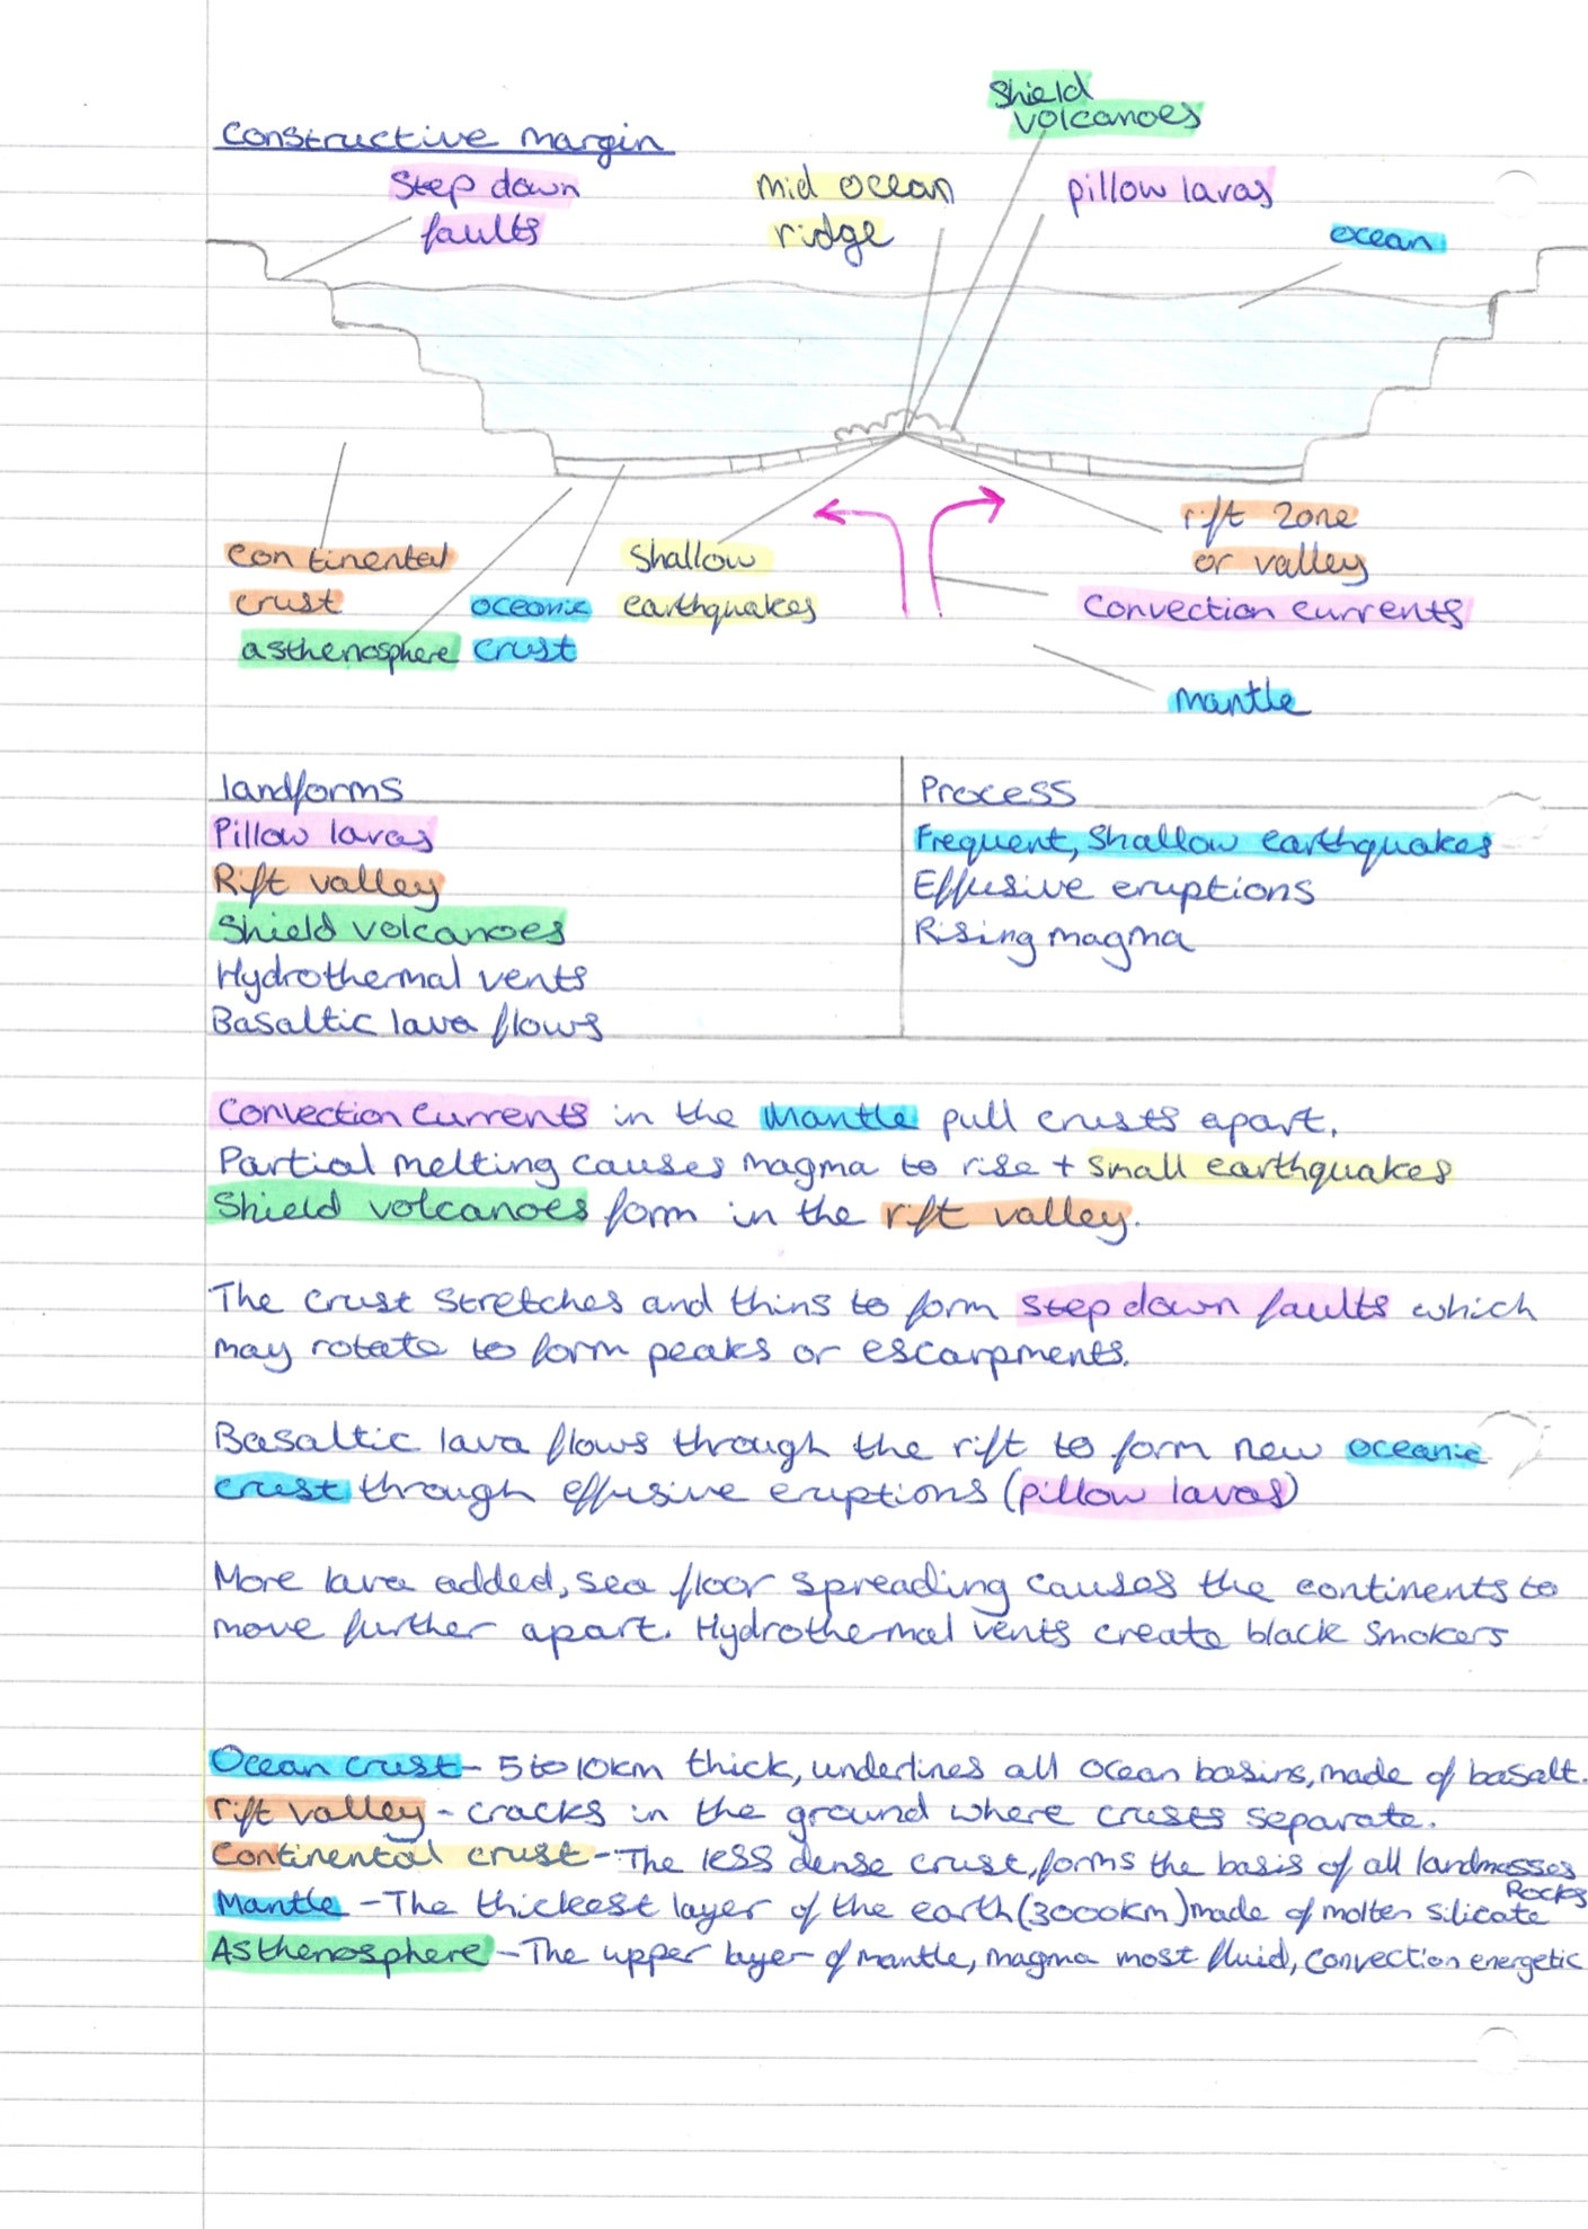 Shield
volcanoes
Constructive margin
Step down
faults
mid ocean
ridge
pillow lavas
ocean
continental
crust
asthenosphere
oceanic
crust
Shallow
earthquakes
rift zone
or valley
Convection currents
mantle
landforms
Pillow lavas
Rift valley
Shield volcanoes
Hydrothermal vents
Basaltic lava flows
Process
Frequent, Shallow earthquakes
Effusive eruptions
Rising magma
Convection Currents in the mantle pull crusts apart.
Partial melting causes magma to rise + small earthquakes
Shield volcanoes form in the rift valley.
The crust stretches and thins to form step down faults which
may rotate to form peaks or escarpments.
Basaltic lava flows through the rift to form new oceanic
crust through effusive eruptions (pillow lavas)
More lava added, sea floor spreading causes the continents to
move further apart. Hydrothermal vents create black smokers
Ocean crust - 5 to 10km thick, underlines all ocean basins, made of basalt.
rift valley - cracks in the ground where crusts separate.
Continental crust - The less dense crust, forms the basis of all landmasses
Mantle - The thickest layer of the earth (3000km) made of molten silicate Rocks
Asthenosphere - The upper layer of mantle, magma most fluid, convection energetic